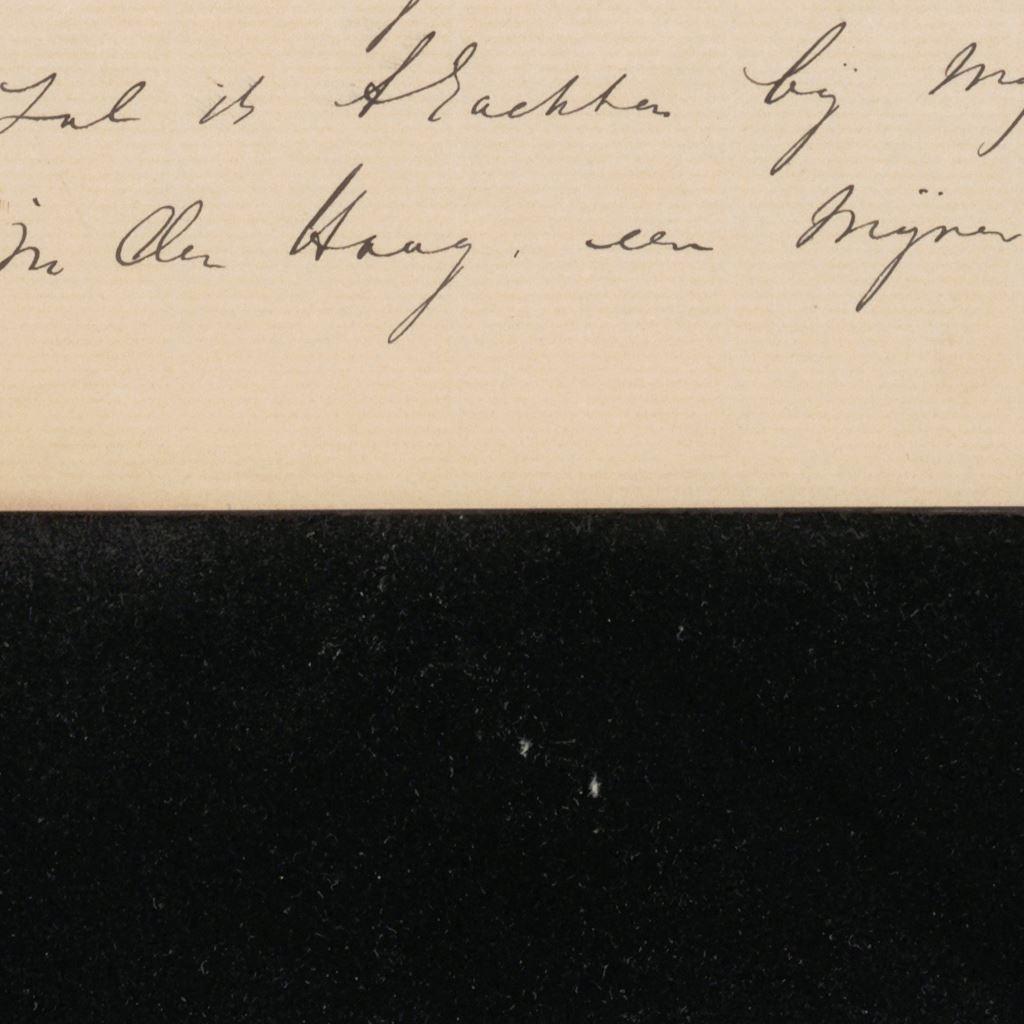 Zal ik trachten bij
in den Haag, een mijner